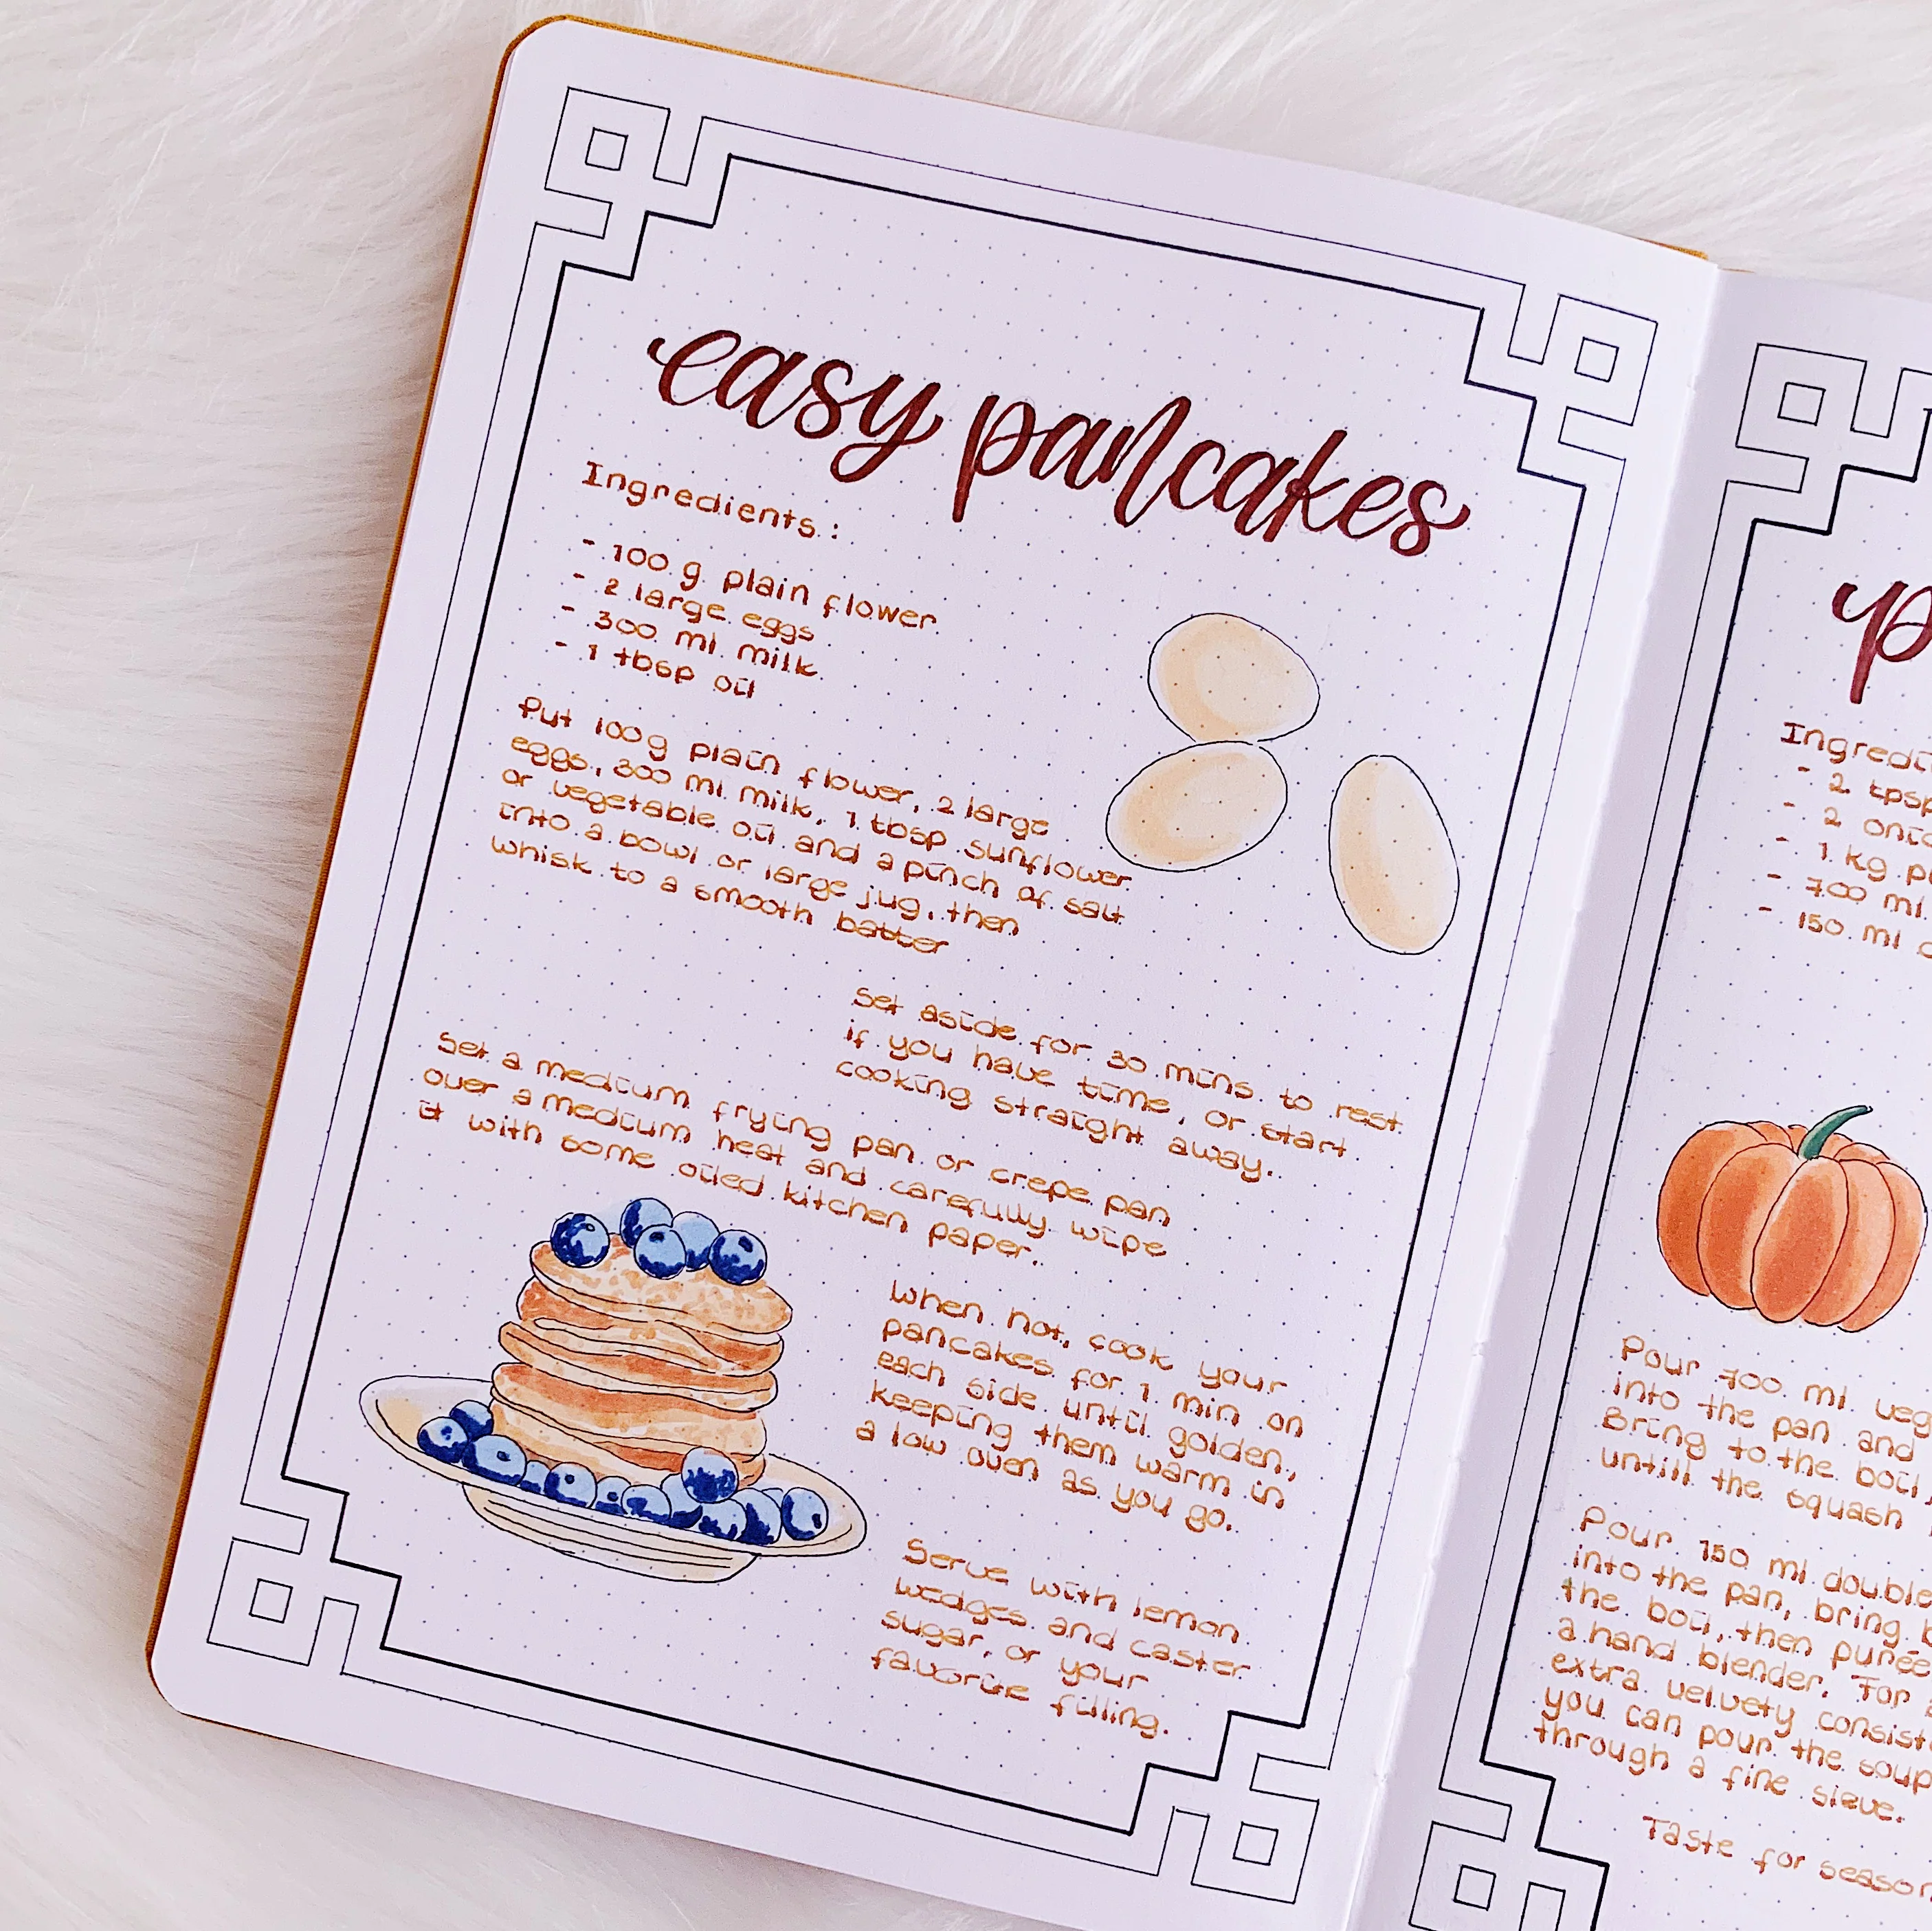 easy pancakes
Ingredients:
- 100 g plain flower
- 2 large eggs
- 300 ml milk
- 1 tbsp oil
Put 100g plain flower, 2 large
eggs, 300 ml milk, 1 tbsp sunflower
or vegetable oil and a pinch of salt
into a bowl or large jug, then
whisk to a smooth batter
Set aside for 30 mins to rest
if you have time, or start
cooking straight away.
Set a medium frying pan or crepe pan
over a medium heat and carefully wipe
it with some oiled kitchen paper.
When hot, cook your
pancakes for 1 min on
each side until golden,
keeping them warm in
a low oven as you go.
Serve with lemon
wedges and caster
sugar, or your
favorite filling.
Ingredi
- 2 tpsp
- 2 onio
- 1 kg pu
- 700 ml
- 150 ml
Pour 700 ml veg
into the pan and
Bring to the boil,
untill the squash
Pour 150 ml double
into the pan, bring b
the boil, then purée
a hand blender. For
extra velvety consist
you can pour the soup
through a fine sieve.
Taste for season